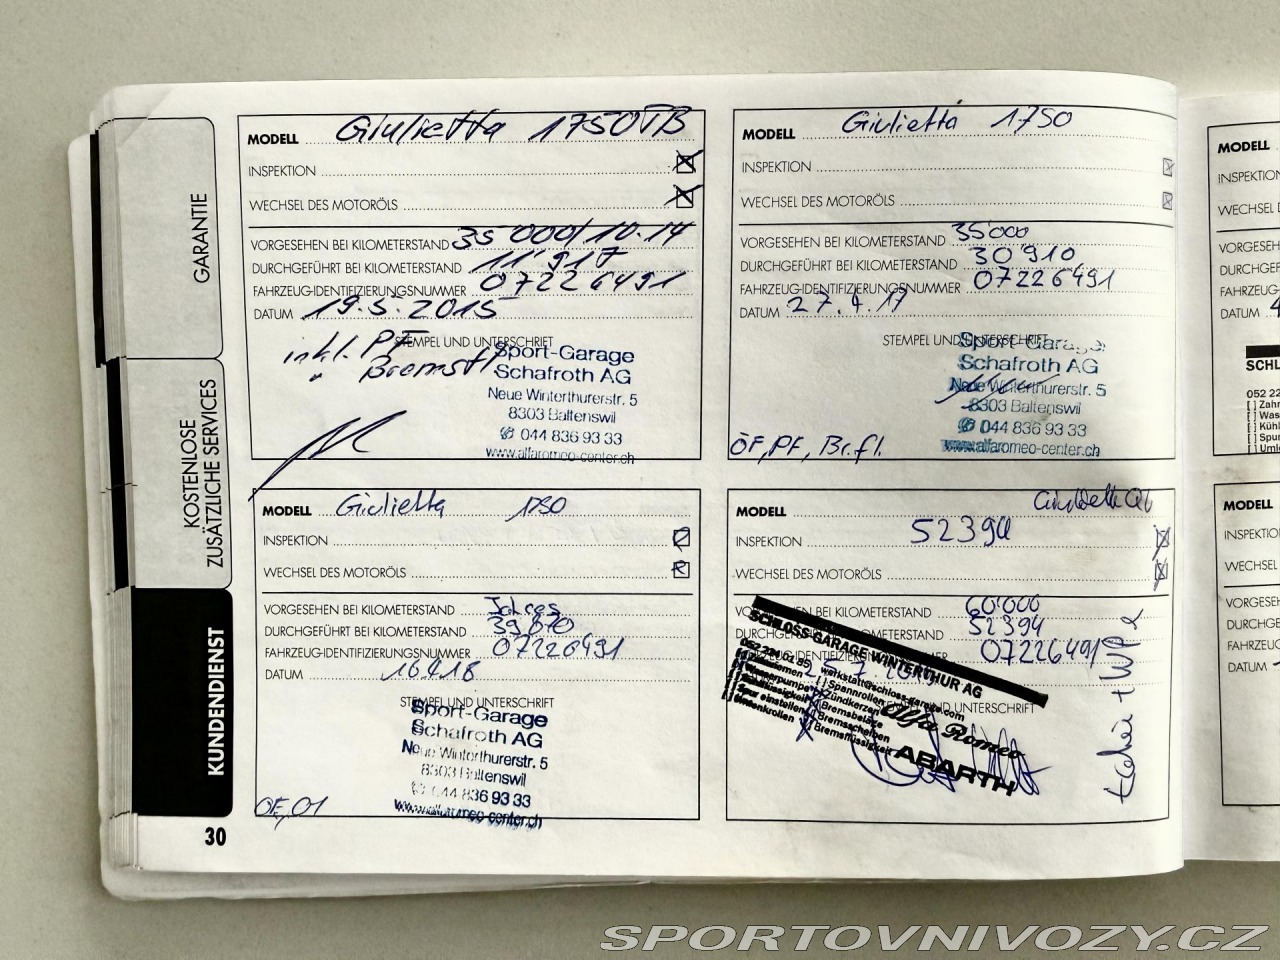 GARANTIE
KOSTENLOSE
ZUSÄTZLICHE SERVICES
KUNDENDIENST
30
MODELL Giulietta 1750TB
INSPEKTION
WECHSEL DES MOTORÖLS
VORGESEHEN BEI KILOMETERSTAND 35 000/10.14
DURCHGEFÜHRT BEI KILOMETERSTAND 11'917
FAHRZEUG-IDENTIFIZIERUNGSNUMMER 07226491
DATUM 19.5.2015
STEMPEL UND UNTERSCHRIFT
inkl. PF
" Bremsfl
Sport-Garage
Schafroth AG
Neue Winterthurerstr. 5
8303 Baltenswil
044 836 93 33
www.alfaromeo-center.ch
MODELL Giulietta 1750
INSPEKTION
WECHSEL DES MOTORÖLS
VORGESEHEN BEI KILOMETERSTAND 35'000
DURCHGEFÜHRT BEI KILOMETERSTAND 30'910
FAHRZEUG-IDENTIFIZIERUNGSNUMMER 07226491
DATUM 27.4.17
STEMPEL UND UNTERSCHRIFT
Sport-Garage
Schafroth AG
Neue Winterthurerstr. 5
8303 Baltenswil
044 836 93 33
www.alfaromeo-center.ch
ÖF, PF, Br.fl.
MODELL Giulietta 1750
INSPEKTION
WECHSEL DES MOTORÖLS
VORGESEHEN BEI KILOMETERSTAND Jahres
DURCHGEFÜHRT BEI KILOMETERSTAND 39'070
FAHRZEUG-IDENTIFIZIERUNGSNUMMER 07226491
DATUM 16.4.18
STEMPEL UND UNTERSCHRIFT
Sport-Garage
Schafroth AG
Neue Winterthurerstr. 5
8303 Baltenswil
044 836 93 33
www.alfaromeo-center.ch
MODELL Giulietta QV
INSPEKTION 52394
WECHSEL DES MOTORÖLS
VORGESEHEN BEI KILOMETERSTAND 60'000
DURCHGEFÜHRT BEI KILOMETERSTAND 52394
FAHRZEUG-IDENTIFIZIERUNGSNUMMER 07226491
UND UNTERSCHRIFT
SCHLOSS-GARAGE WINTERTHUR AG
werkstatt@schloss-garage.com
Zahnriemen [ ] Spannrollen
Wasserpumpe [ ] Zündkerzen
[ ] Bremsbeläge
Spur einstellen [ ] Bremsscheiben
Umlenkrollen Bremsflüssigkeit
Alfa Romeo
ABARTH
MODELL
INSPEKTION
WECHSEL DES
VORGESEH
DURCHGEF
FAHRZEUG-
DATUM
SCHL
052 22
[ ] Zahn
[ ] Was
[ ] Kühl
[ ] Spur
[ ] Umle
MODELL
INSPEKTIO
WECHSEL
VORGESE
DURCHGEF
FAHRZEU
DATUM
SPORTOVNIVOZY.CZ